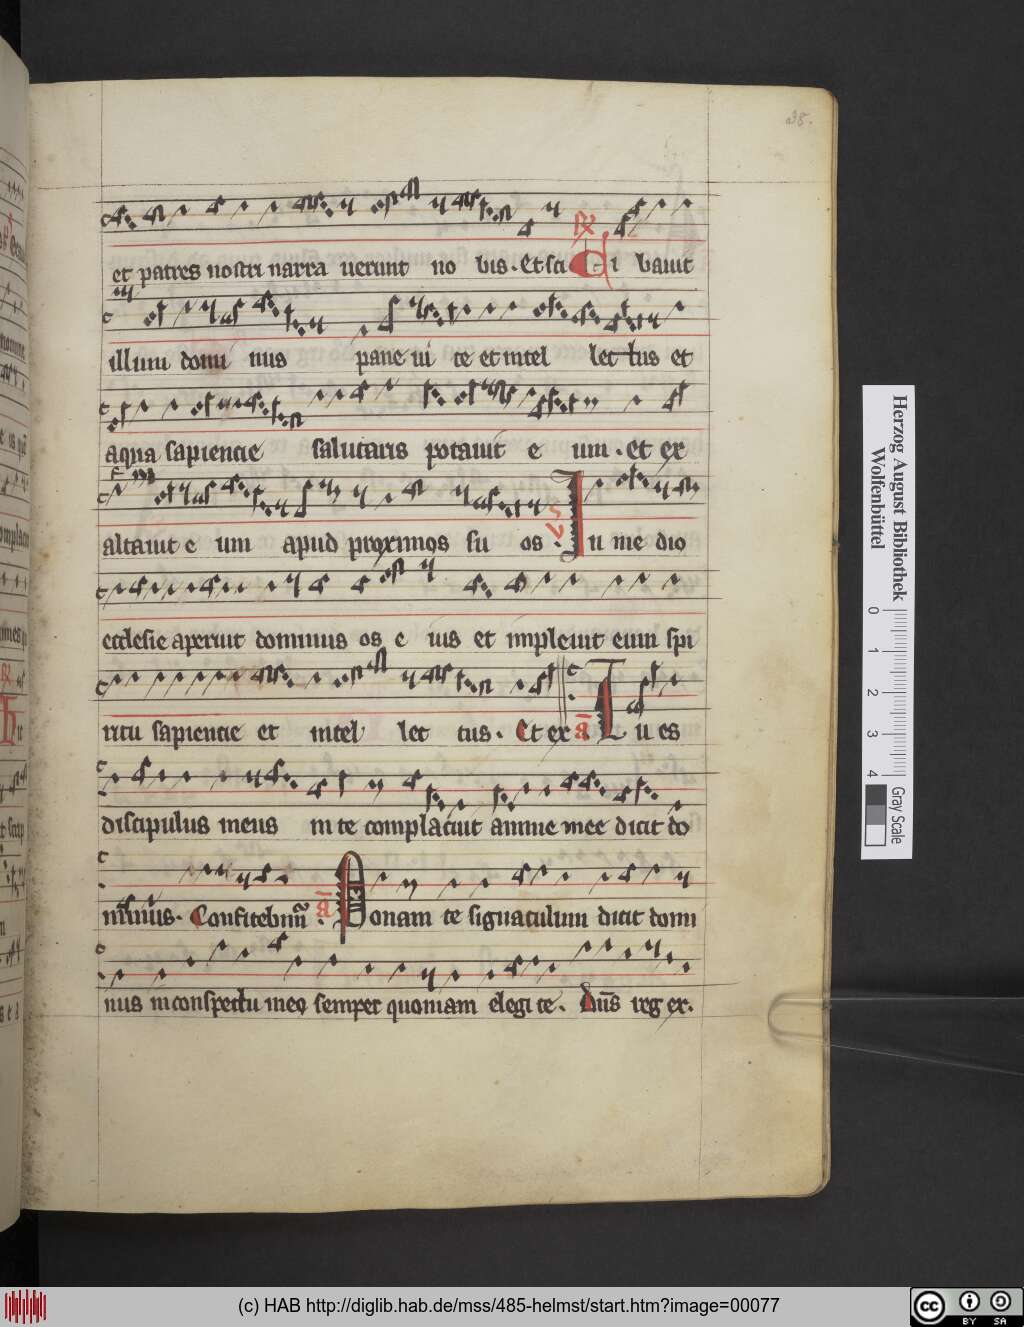 38.
et patres nostri narra uerunt no bis. Et sci R Ci bauit
illum domi nus pane ui te et intel lectus et
aqua sapiencie salutaris potauit e um. et ex
altauit e um apud proximos su os. V In me dio
ecclesie aperuit dominus os e ius et impleuit eum spi
ritu sapiencie et intel lec tus. Et ex a Tu es
discipulus meus in te complacuit anime mee dicit do
minus. Confitebim̄ a Donam te signaculum dicit domi
nus in conspectu meo semper quoniam elegi te. Dn̄s reg ex.
Herzog August Bibliothek
Wolfenbüttel
0 1 2 3 4
Gray Scale
(c) HAB http://diglib.hab.de/mss/485-helmst/start.htm?image=00077
cc BY SA